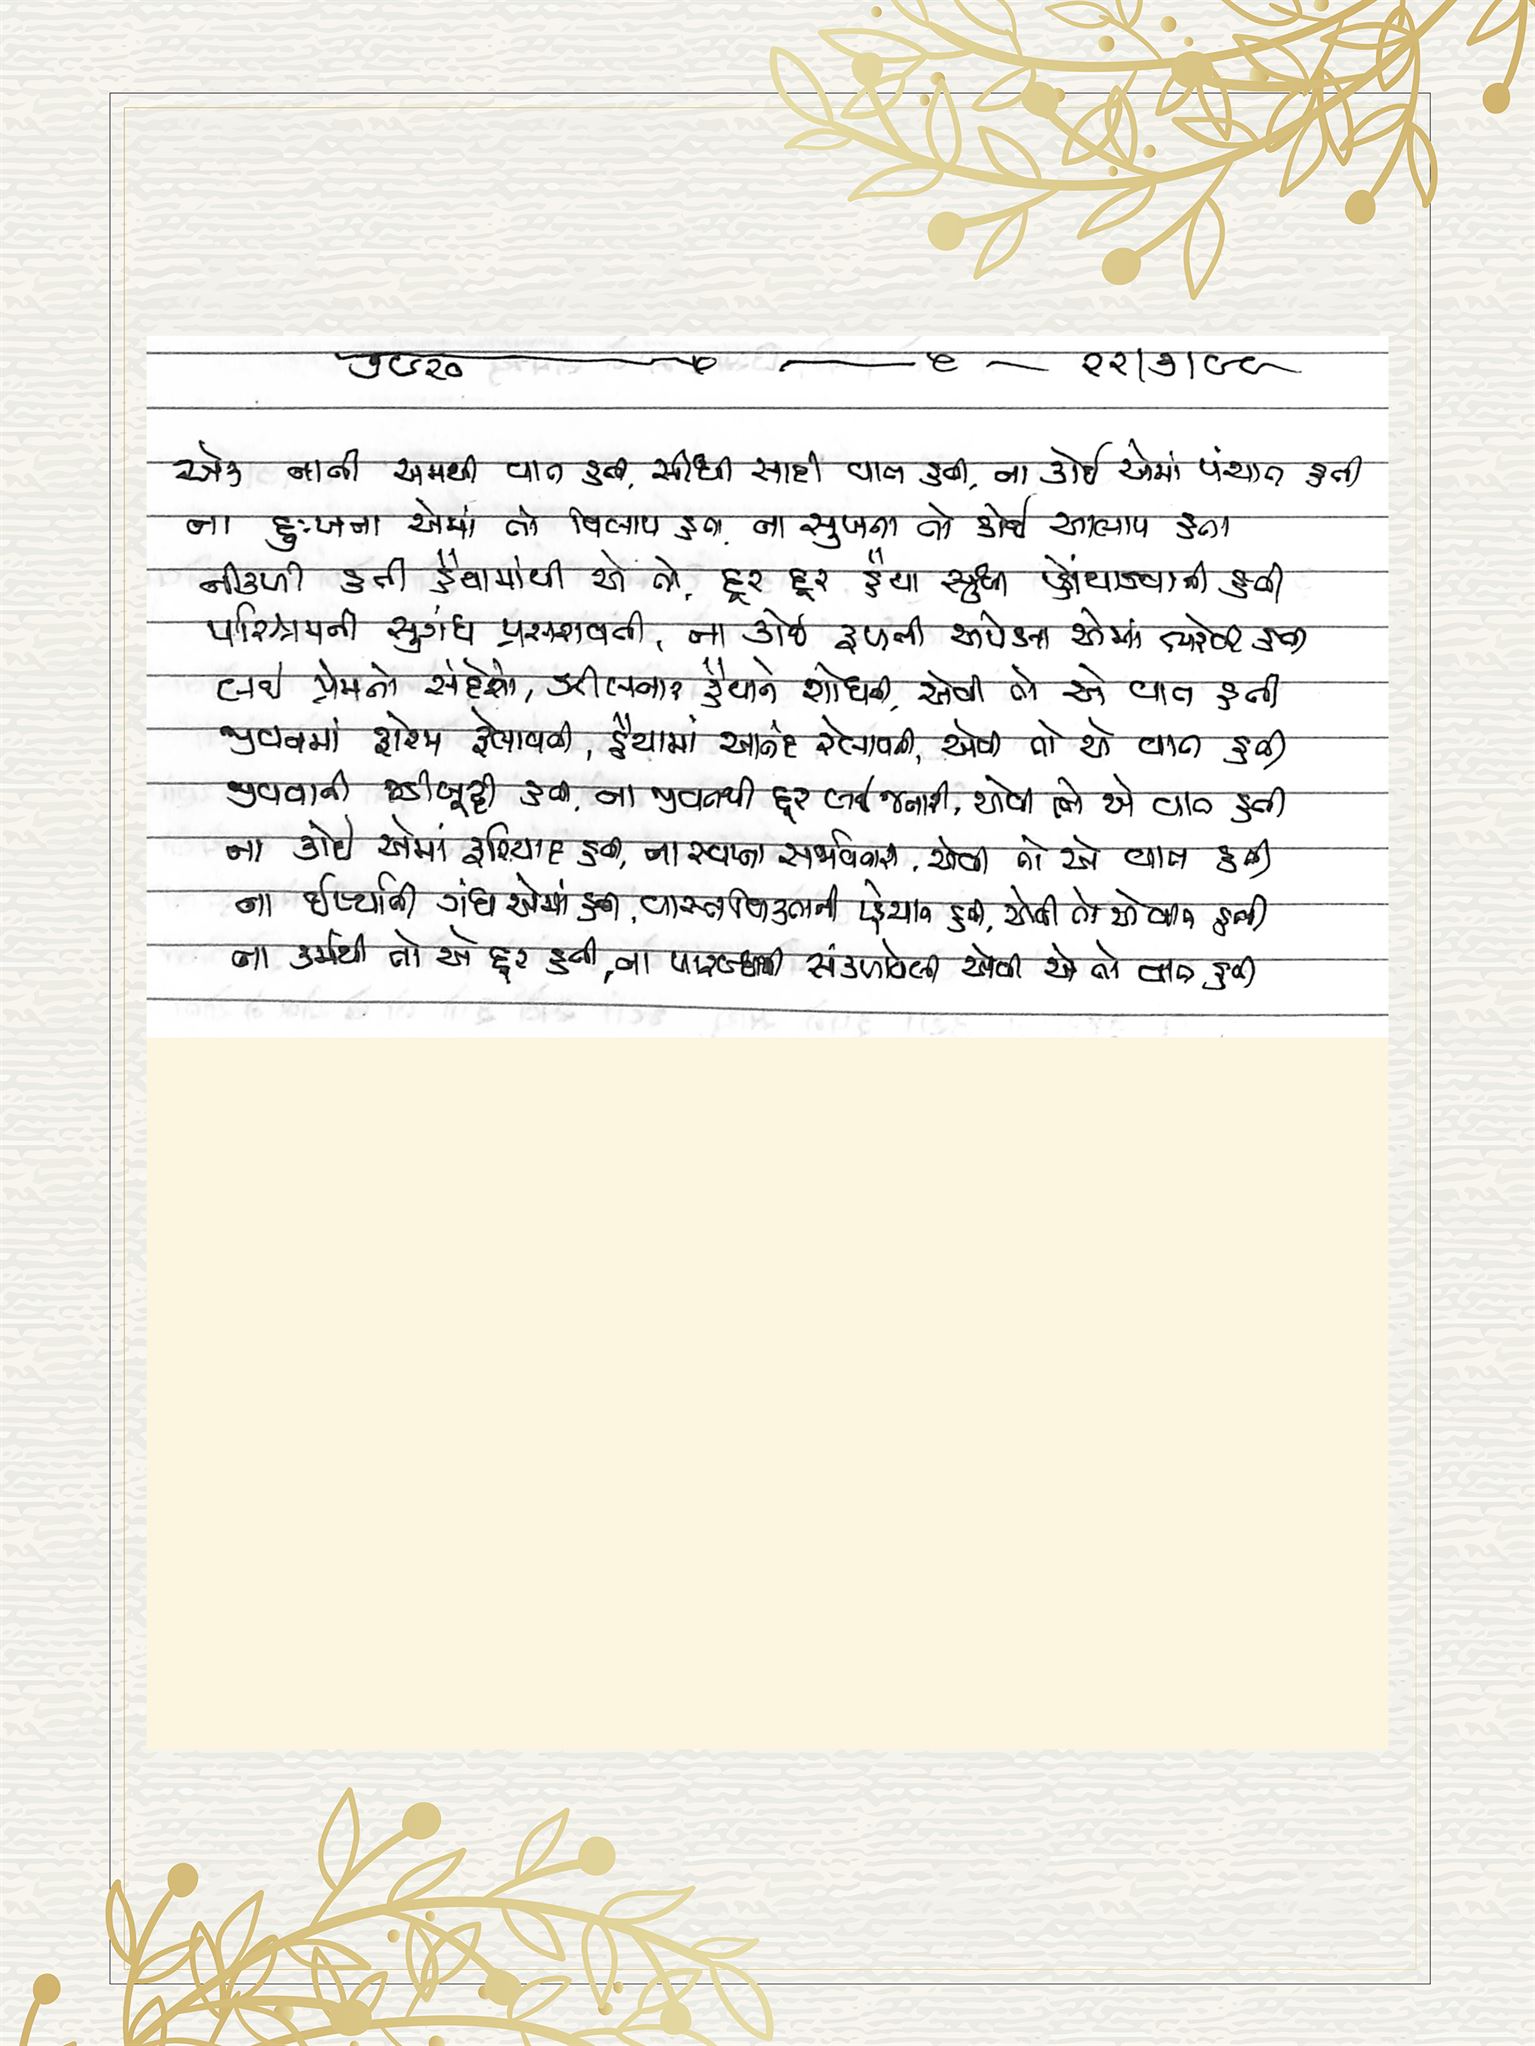 એક નાની અમથી વાત હતી, સીધી સાદી વાત હતી, ના કોઈ એમાં પંચાત હતી
ના દુઃખના એમાં તો વિલાપ હતા, ના સુખના તો કોઈ આલાપ હતા
નીકળી હતી હૈયામાંથી એ તો, દૂર દૂર હૈયા સુધી પહોંચાડવાની હતી
પરિશ્રમની સુગંધ પ્રસરાવતી, ના કોઈ એમાં હતી
લઈ પ્રેમનો સંદેશો, ઝીલનાર હૈયાને શોધતી, એવી તો એ વાત હતી
જીવનમાં ફોરમ ફેલાવતી, હૈયામાં આનંદ રેલાવતી, એવી તો એ વાત હતી
જીવવાની જડીબૂટ્ટી હતી, ના જીવનથી દૂર લઈ જનારી, એવી તો એ વાત હતી
ના કોઈ એમાં ફરિયાદ હતી, ના સ્વપ્ના સર્જાવનારી, એવી તો એ વાત હતી
ના ઈર્ષ્યાની ગંધ એમાં હતી, વાસ્તવિકતાની હતી, એવી તો એ વાત હતી
ના કર્મથી તો એ દૂર હતી, ના પ્રારબ્ધથી સંકળાયેલી એવી એ તો વાત હતી